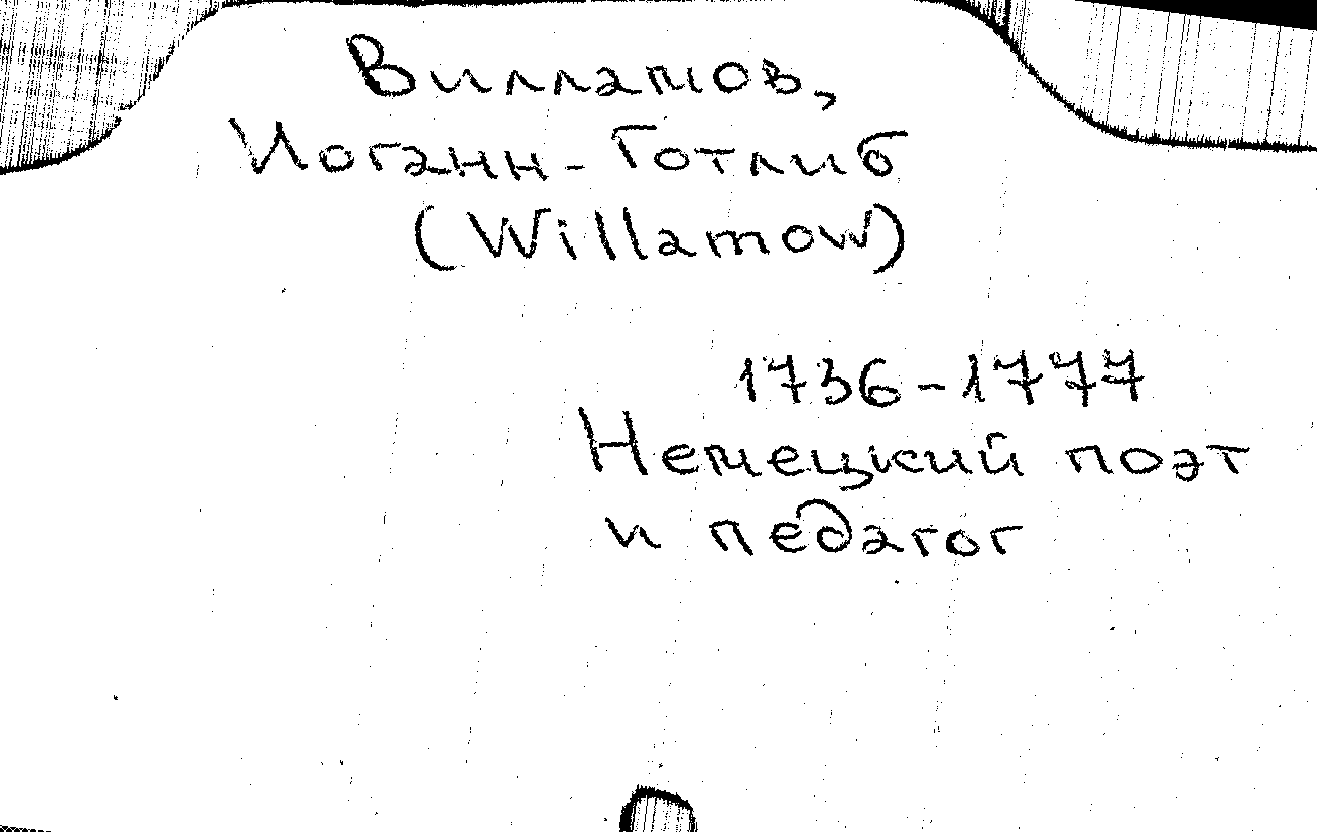 Вилламов,
Иоганн-Готлиб
(Willamow)
1736-1777
Немецкий поэт
и педагог